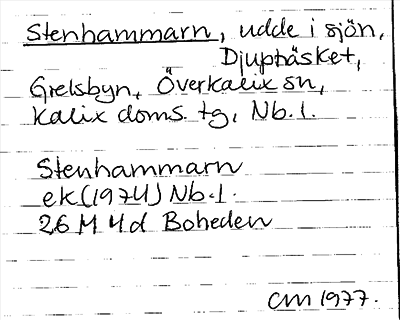 Stenhammarn, udde i sjön,
Djupträsket,
Grelsbyn, Överkalix sn,
Kalix doms. tg, Nb. l.
Stenhammarn
ek (1974) Nb. l.
26 M 4d Boheden
CM 1977.